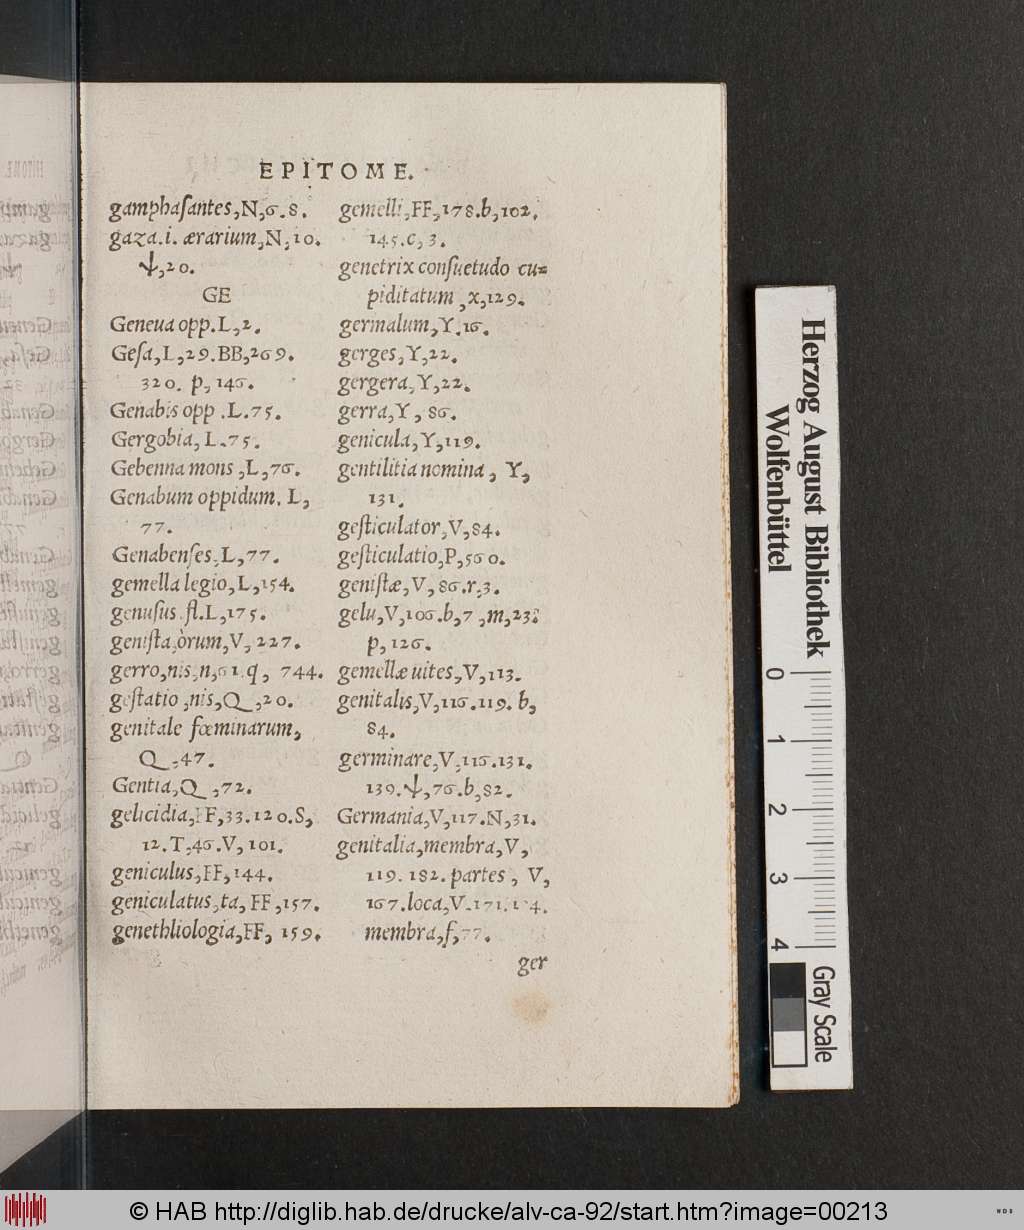 EPITOME.
gamphaſantes,N,6.8.
gaza.i. ærarium,N,10.
ψ,20.
GE
Geneua opp.L,2.
Geſa,L,29.BB,269.
320. p,146.
Genabis opp .L.75.
Gergobia, L.75.
Gebenna mons ,L,76.
Genabum oppidum. L,
77.
Genabenſes,L,77.
gemella legio,L,154.
genuſus.fl.L,175.
geniſta,òrum,V,227.
gerro,nis,n,61.q, 744.
geſtatio ,nis,Q,20.
genitale fœminarum,
Q,47.
Gentia,Q,72.
gelicidia,FF,33.120.S,
12.T,46.V,101.
geniculus,FF,144.
geniculatus,ta, FF,157.
genethliologia,FF, 159.
gemelli,FF,178.b,102.
145.c,3.
genetrix conſuetudo cu-
piditatum ,x,129.
germalum,Y.16.
gerges,Y,22.
gergera,Y,22.
gerra,Y, 86.
genicula,Y,119.
gentilitia nomina , Y,
131.
geſticulator,V,84.
geſticulatio,P,560.
geniſtæ,V,86.r,3.
gelu,V,106.b,7,m,23.
p,126.
gemellæ uites,V,113.
genitalis,V,116.119. b,
84.
germinare,V,116.131.
139.ψ,76.b,82.
Germania,V,117.N,31.
genitalia,membra,V,
119. 182. partes , V,
167.loca,V.171.
membra,f,77.
ger
Herzog August Bibliothek
Wolfenbüttel
0 1 2 3 4
Gray Scale
© HAB http://diglib.hab.de/drucke/alv-ca-92/start.htm?image=00213